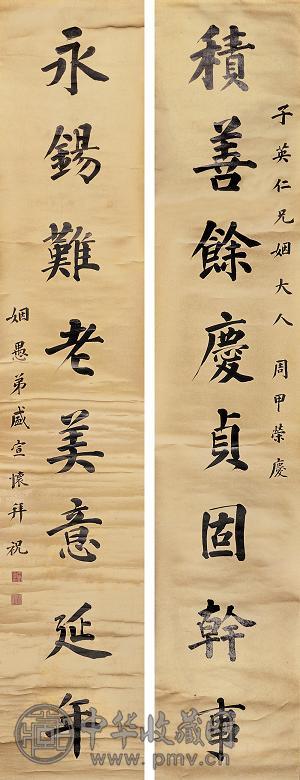 子英仁兄姻大人 周甲榮慶
積善餘慶貞固幹事
永錫難老美意延年
姻愚弟盛宣懷拜祝
中华收藏网
www.pmv.cn